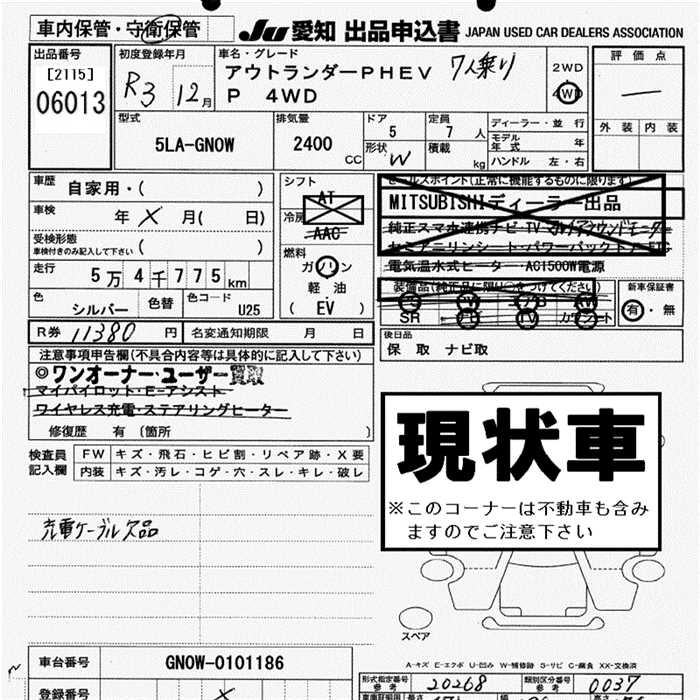 車内保管・守衛保管
JU 愛知 出品申込書 JAPAN USED CAR DEALERS ASSOCIATION
出品番号
[2115]
06013
初度登録年月
R3 12月
車名・グレード
アウトランダーPHEV 7人乗り
P 4WD
2WD
4WD
評価点
―
外装 内装
型式
5LA-GN0W
排気量
2400 CC
ドア
5
形状 W
定員
7 人
積載 kg
ディーラー・並行
モデル年式 年
ハンドル 左・右
車歴 自家用・( )
車検 年 × 月( 日)
受検形態
車検付きのみ記入して下さい ( )
走行 5万4千775km
色 シルバー
色替
色コード U25
シフト
AT
冷房
AAC
燃料
ガソリン
軽油
( EV )
セールスポイント(正常に機能するものに限ります)
MITSUBISHIディーラー出品
純正スマホ連携ナビ・TV マルチアラウンドモニター
セミアニリンシート・パワーバックドア・ETC
電気温水式ヒーター・AC1500W電源
装備品(純正品に限り○をつけてください)
SR ナビ TV カワシート
新車保証書
有・無
R券 11380 円
名変通知期限 月 日
後日品
保 取 ナビ取
注意事項申告欄(不具合内容等は具体的に記入して下さい)
◎ワンオーナー・ユーザー買取
マイパイロット・E-アシスト
ワイヤレス充電・ステアリングヒーター
修復歴 有 (箇所 )
検査員記入欄
FW キズ・飛石・ヒビ割・リペア跡・X要
内装 キズ・汚レ・コゲ・穴・スレ・キレ・破レ
充電ケーブル欠品
現状車
※このコーナーは不動車も含みますのでご注意下さい
スペア
A-キズ E-エクボ U-凹み W-補修跡 S-サビ C-腐食 XX-交換済
車台番号 GN0W-0101186
登録番号 ×
形式指定番号 参考 20268
類別区分番号 参考 0037